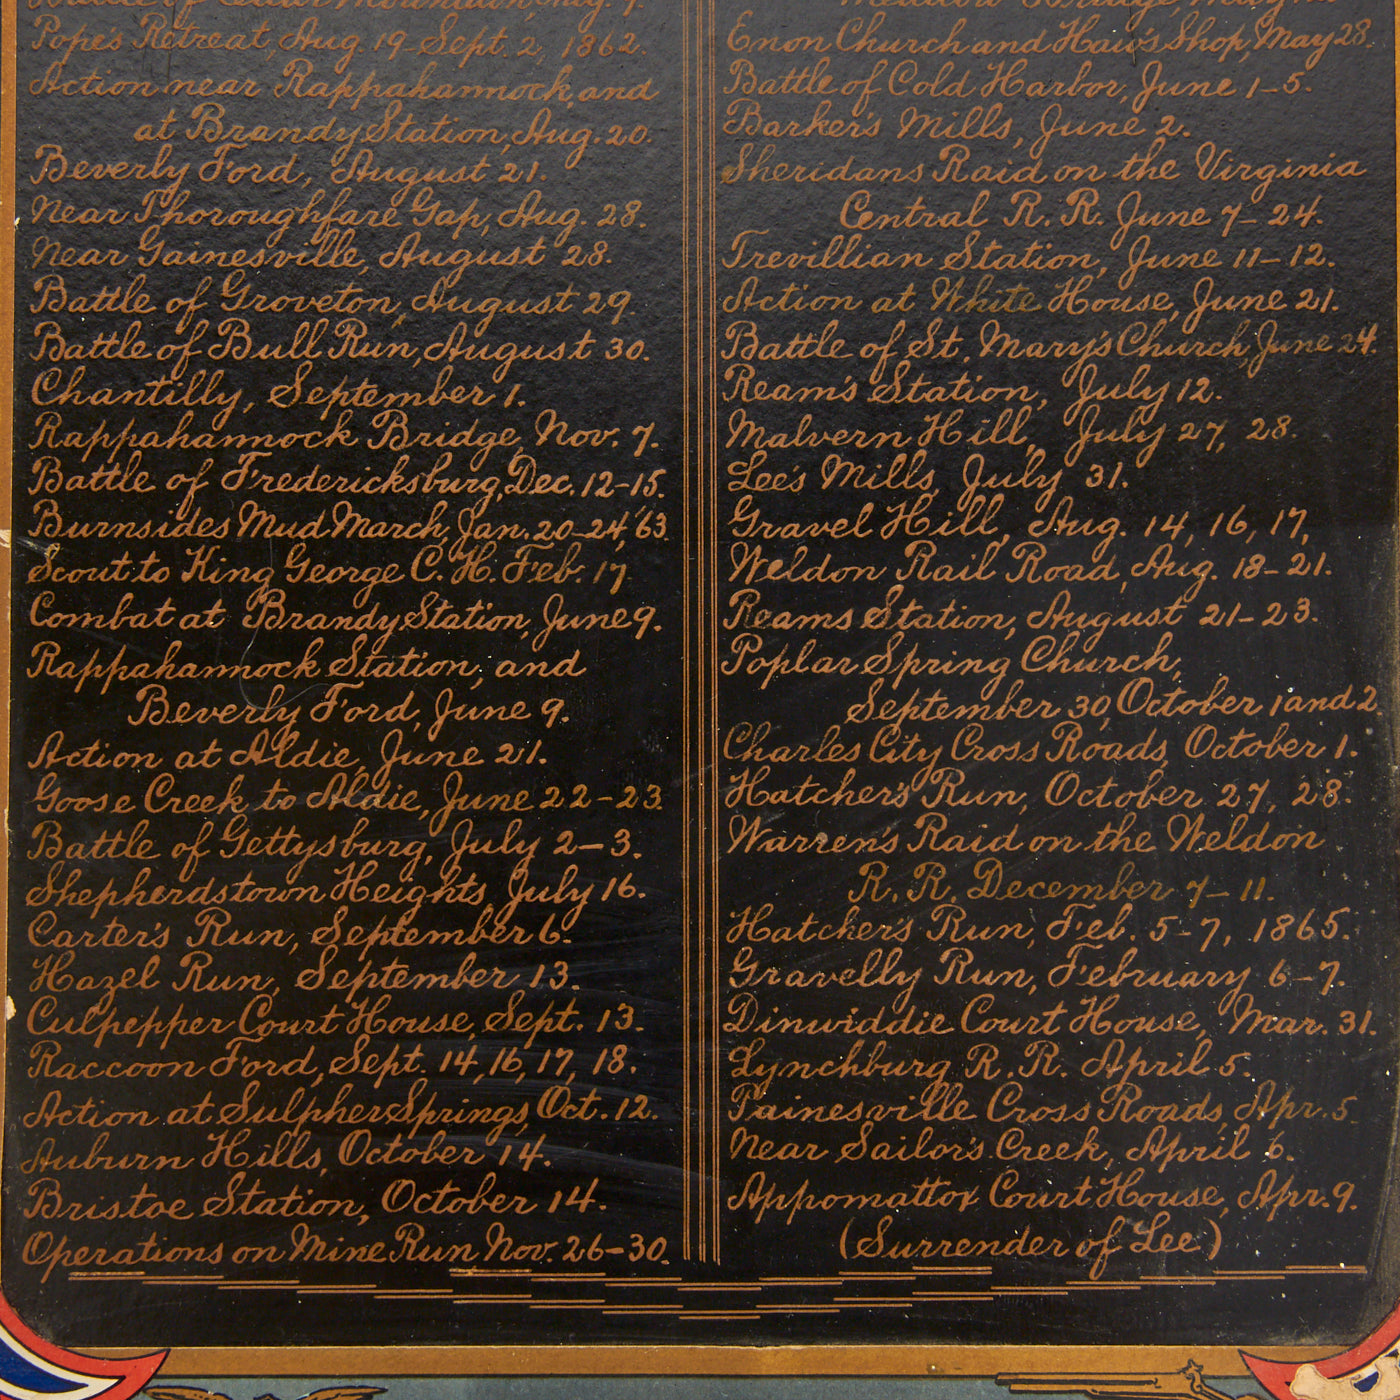 Battle of Cedar Mountain, Aug. 9.
Pope's Retreat, Aug. 19-Sept. 2, 1862.
Action near Rappahannock, and
at Brandy Station, Aug. 20.
Beverly Ford, August 21.
Near Thoroughfare Gap, Aug. 28.
Near Gainesville, August 28.
Battle of Groveton, August 29.
Battle of Bull Run, August 30.
Chantilly, September 1.
Rappahannock Bridge, Nov. 7.
Battle of Fredericksburg, Dec. 12-15.
Burnsides Mud March, Jan. 20-24, '63.
Scout to King George C. H. Feb. 17.
Combat at Brandy Station, June 9.
Rappahannock Station, and
Beverly Ford, June 9.
Action at Aldie, June 21.
Goose Creek to Aldie, June 22-23.
Battle of Gettysburg, July 2-3.
Shepherdstown Heights, July 16.
Carter's Run, September 6.
Hazel Run, September 13.
Culpepper Court House, Sept. 13.
Raccoon Ford, Sept. 14, 16, 17, 18.
Action at Sulpher Springs, Oct. 12.
Auburn Hills, October 14.
Bristoe Station, October 14.
Operations on Mine Run Nov. 26-30.
Meadow Bridge, May
Enon Church and Haw's Shop, May 28.
Battle of Cold Harbor, June 1-5.
Barker's Mills, June 2.
Sheridans Raid on the Virginia
Central R. R. June 7-24.
Trevillian Station, June 11-12.
Action at White House, June 21.
Battle of St. Mary's Church, June 24.
Ream's Station, July 12.
Malvern Hill, July 27, 28.
Lee's Mills, July 31.
Gravel Hill, Aug. 14, 16, 17,
Weldon Rail Road, Aug. 18-21.
Reams Station, August 21-23.
Poplar Spring Church,
September 30, October 1 and 2
Charles City Cross Roads, October 1.
Hatcher's Run, October 27, 28.
Warren's Raid on the Weldon
R. R. December 7-11.
Hatcher's Run, Feb. 5-7, 1865.
Gravelly Run, February 6-7.
Dinwiddie Court House, Mar. 31.
Lynchburg R. R. April 5.
Painesville Cross Roads, Apr. 5.
Near Sailor's Creek, April 6.
Appomattox Court House, Apr. 9.
(Surrender of Lee)